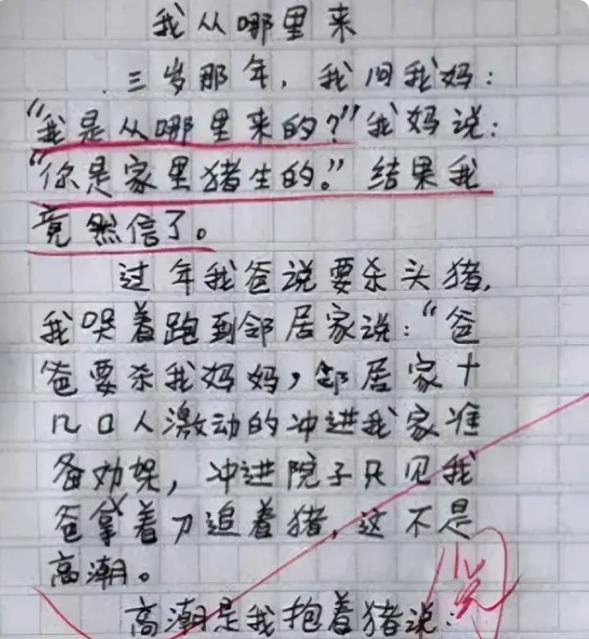 我从哪里来
三岁那年，我问我妈：
“我是从哪里来的？”我妈说：
“你是家里猪生的。”结果我
竟然信了。
过年我爸说要杀头猪，
我哭着跑到邻居家说：“爸
爸要杀我妈妈，邻居家十
几口人激动的冲进我家准
备劝架，冲进院子只见我
爸拿着刀追着猪，这不是
高潮。
高潮是我抱着猪说：
阅